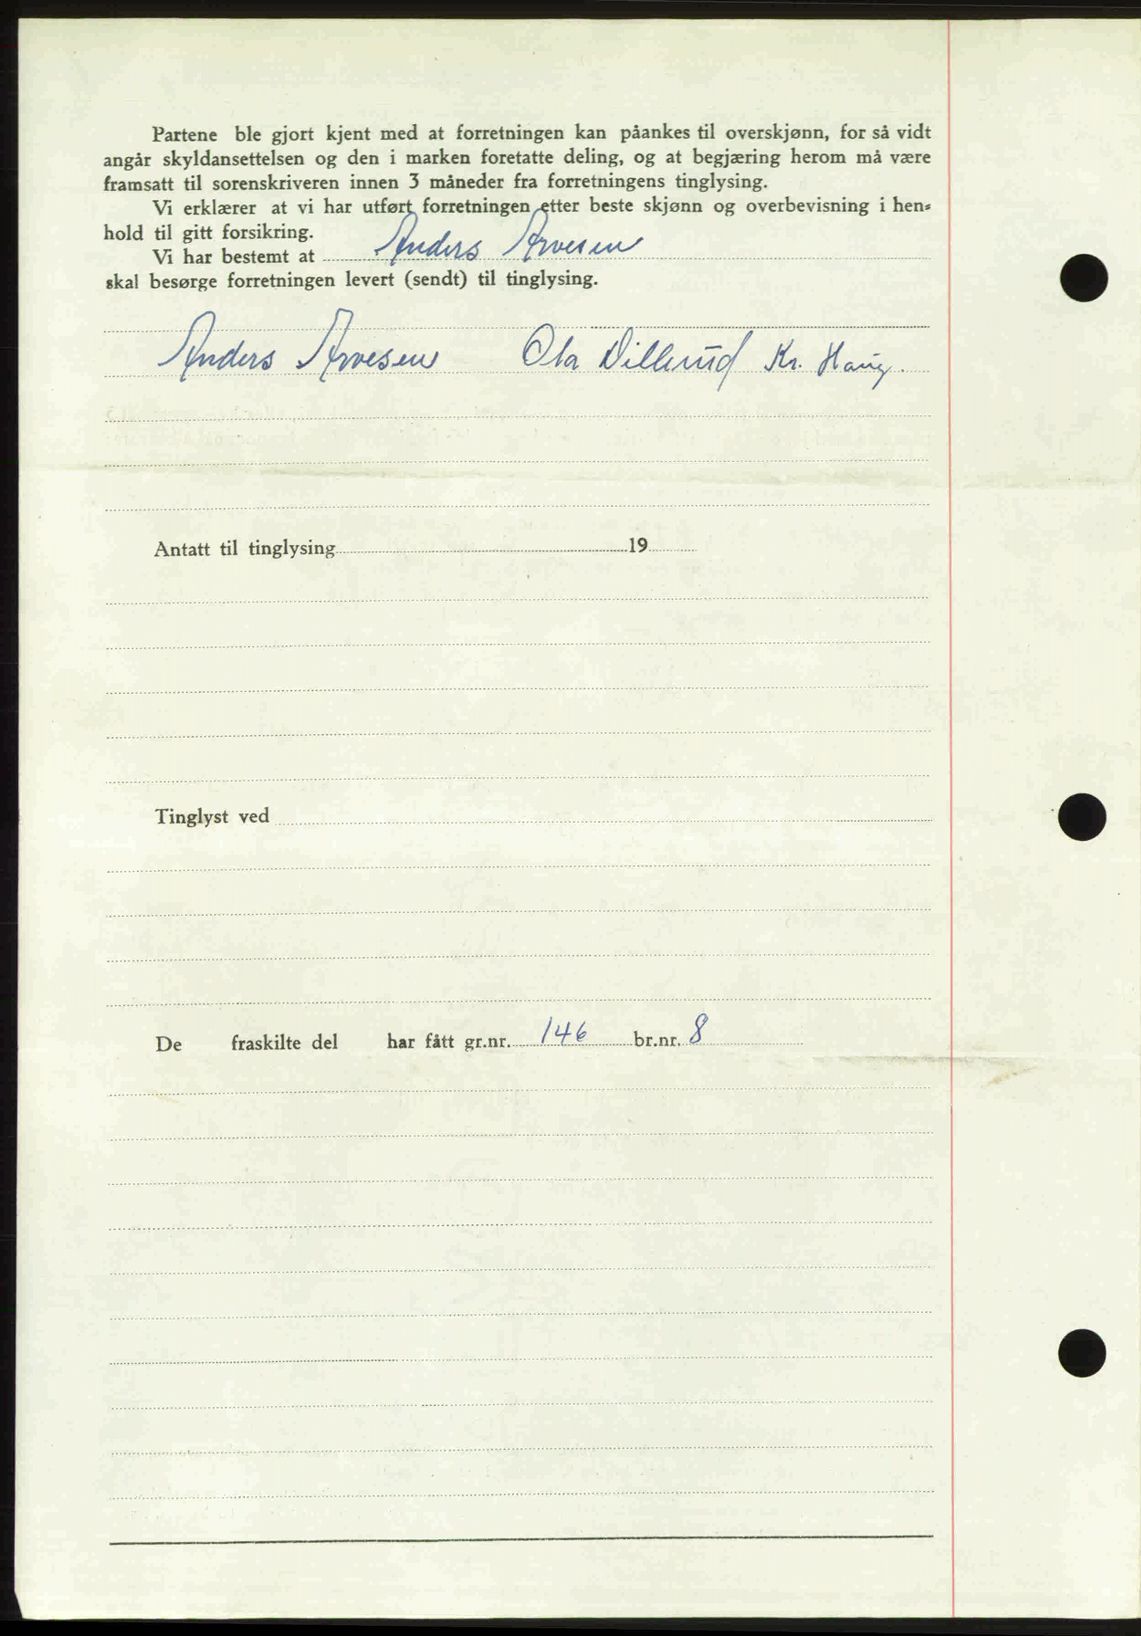 Partene ble gjort kjent med at forretningen kan påankes til overskjønn, for så vidt
angår skyldansettelsen og den i marken foretatte deling, og at begjæring herom må være
framsatt til sorenskriveren innen 3 måneder fra forretningens tinglysing.
Vi erklærer at vi har utført forretningen etter beste skjønn og overbevisning i hen-
hold til gitt forsikring.
Vi har bestemt at Anders Arvesen
skal besørge forretningen levert (sendt) til tinglysing.
Anders Arvesen Ola Dillerud Kr. Haug.
Antatt til tinglysing 19
Tinglyst ved
De fraskilte del har fått gr.nr. 146 br.nr. 8